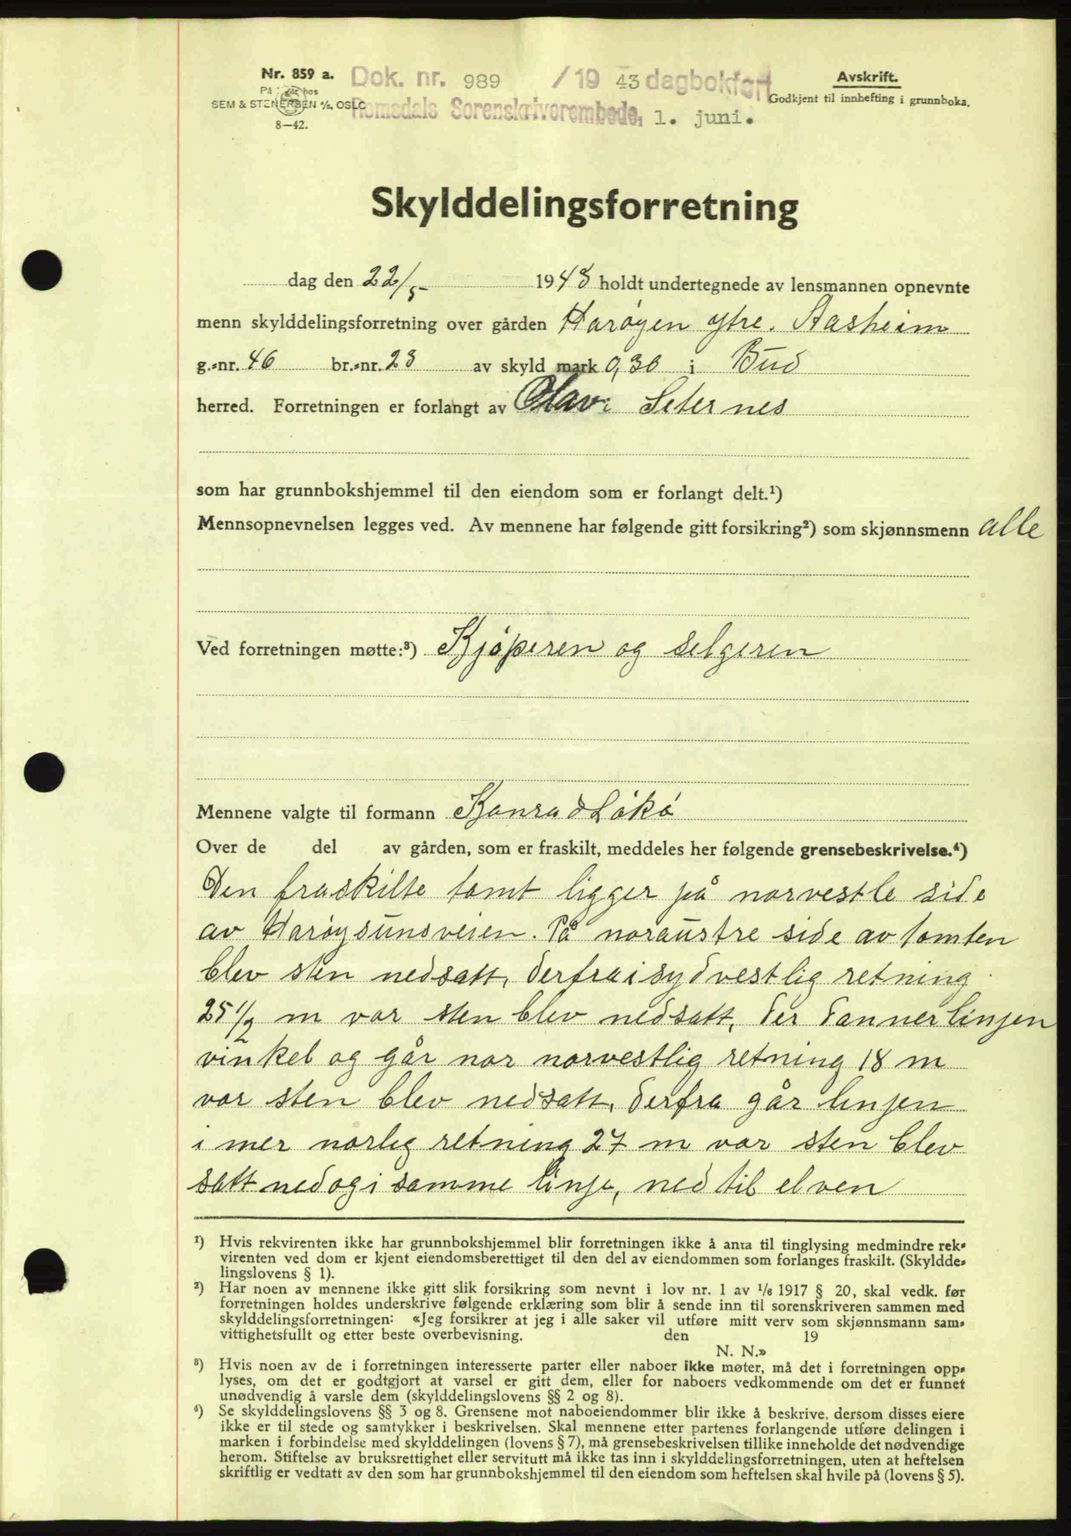 Nr. 859 a.
På lager hos
SEM & STENERSEN A/S. OSLO
8—42.
Dok. nr. 989 /19 43 dagbokført
Romsdals Sorenskriverembede, 1. juni.
Avskrift.
Godkjent til innhefting i grunnboka.
Skylddelingsforretning
dag den 22/5 1943 holdt undertegnede av lensmannen opnevnte
menn skylddelingsforretning over gården Harøyen ytre. Aasheim
g.-nr. 46 br.-nr. 23 av skyld mark 0,30 i Bud
herred. Forretningen er forlangt av Olav Seternes
som har grunnbokshjemmel til den eiendom som er forlangt delt.¹)
Mennsopnevnelsen legges ved. Av mennene har følgende gitt forsikring²) som skjønnsmenn alle
Ved forretningen møtte:³) Kjøperen og selgeren
Mennene valgte til formann Konrad Løkø
Over de del av gården, som er fraskilt, meddeles her følgende grensebeskrivelse.⁴)
Den fraskilte tomt ligger på norvestle side
av Harøysunsveien. På noraustre side av tomten
blev sten nedsatt, derfra i sydvestlig retning
25 1/2 m vor sten blev nedsatt, der danner linjen
vinkel og går nor norvestlig retning 18 m
vor sten blev nedsatt, derfra går linjen
i mer norlig retning 27 m vor sten blev
satt ned og i samme linje, ned til elven
¹) Hvis rekvirenten ikke har grunnbokshjemmel blir forretningen ikke å anta til tinglysing medmindre rek-
virenten ved dom er kjent eiendomsberettiget til den del av eiendommen som forlanges fraskilt. (Skyldde-
lingslovens § 1).
²) Har noen av mennene ikke gitt slik forsikring som nevnt i lov nr. 1 av 1/6 1917 § 20, skal vedk. før
forretningen holdes underskrive følgende erklæring som blir å sende inn til sorenskriveren sammen med
skylddelingsforretningen: «Jeg forsikrer at jeg i alle saker vil utføre mitt verv som skjønnsmann sam-
vittighetsfullt og etter beste overbevisning. den 19
N. N.»
³) Hvis noen av de i forretningen interesserte parter eller naboer ikke møter, må det i forretningen opp-
lyses, om det er godtgjort at varsel er gitt dem, eller for naboers vedkommende om det er funnet
unødvendig å varsle dem (skylddelingslovens §§ 2 og 8).
⁴) Se skylddelingslovens §§ 3 og 8. Grensene mot naboeiendommer blir ikke å beskrive, dersom disses eiere
ikke er til stede og samtykker i beskrivelsen. Skal mennene etter partenes forlangende utføre delingen i
marken i forbindelse med skylddelingen (lovens § 7), må grensebeskrivelsen tillike inneholde det nødvendige
herom. Stiftelse av bruksrettighet eller servitutt må ikke tas inn i skylddelingsforretningen, uten at heftelsen
skriftlig er vedtatt av den som har grunnbokshjemmel til den eiendom som heftelsen skal hvile på (lovens § 5).